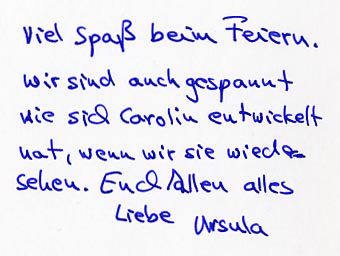 Viel Spaß beim Feiern.
wir sind auch gespannt
wie sich Carolin entwickelt
hat, wenn wir sie wieder
sehen. Euch Allen alles
Liebe Ursula